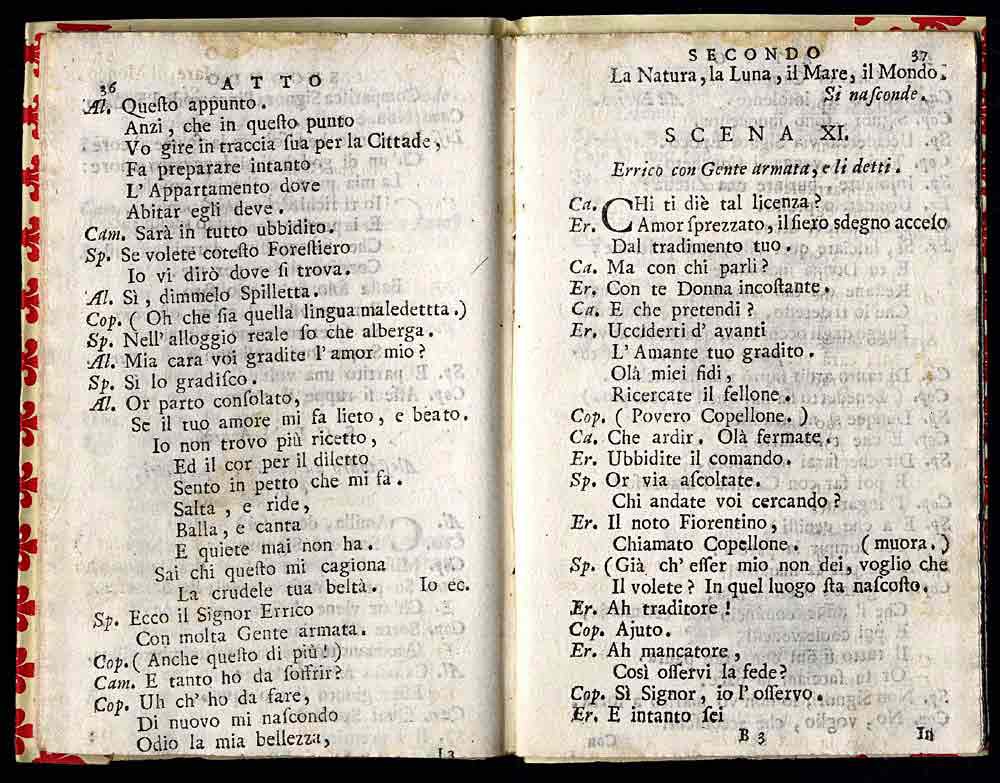 36
ATTO
Al. Queſto appunto.
Anzi, che in queſto punto
Vo gire in traccia ſua per la Cittade,
Fa preparare intanto
L'Appartamento dove
Abitar egli deve.
Cam. Sarà in tutto ubbidito.
Sp. Se volete coteſto Foreſtiero
Io vi dirò dove ſi trova.
Al. Sì, dimmelo Spilletta.
Cop. ( Oh che ſia quella lingua maledettta.)
Sp. Nell' alloggio reale ſo che alberga.
Al. Mia cara voi gradite l'amor mio?
Sp. Sì lo gradiſco.
Al. Or parto conſolato,
Se il tuo amore mi fa lieto, e beato.
Io non trovo più ricetto,
Ed il cor per il diletto
Sento in petto che mi fa.
Salta, e ride,
Balla, e canta
E quiete mai non ha.
Sai chi queſto mi cagiona
La crudele tua beltà. Io ec.
Sp. Ecco il Signor Errico
Con molta Gente armata.
Cop. ( Anche queſto di più!)
Cam. E tanto ho da ſoffrir?
Cop. Uh ch' ho da fare,
Di nuovo mi naſcondo
Odio la mia bellezza,
La
SECONDO
37
La Natura, la Luna, il Mare, il Mondo.
Si naſconde.
SCENA XI.
Errico con Gente armata, e li detti.
Ca. CHi ti diè tal licenza?
Er. Amor ſprezzato, il fiero sdegno acceſo
Dal tradimento tuo.
Ca. Ma con chi parli?
Er. Con te Donna incoſtante.
Ca. E che pretendi?
Er, Ucciderti d' avanti
L'Amante tuo gradito.
Olà miei fidi,
Ricercate il fellone.
Cop. ( Povero Copellone. )
Ca. Che ardir. Olà fermate.
Er. Ubbidite il comando.
Sp. Or via aſcoltate.
Chi andate voi cercando?
Er. Il noto Fiorentino,
Chiamato Copellone. ( muora. )
Sp. (Già ch' eſſer mio non dei, voglio che
Il volete? In quel luogo ſta naſcoſto.
Er. Ah traditore!
Cop. Ajuto.
Er. Ah mancatore,
Così oſſervi la fede?
Cop. Sì Signor, io l'oſſervo.
Er. E intanto ſei
B 3
In